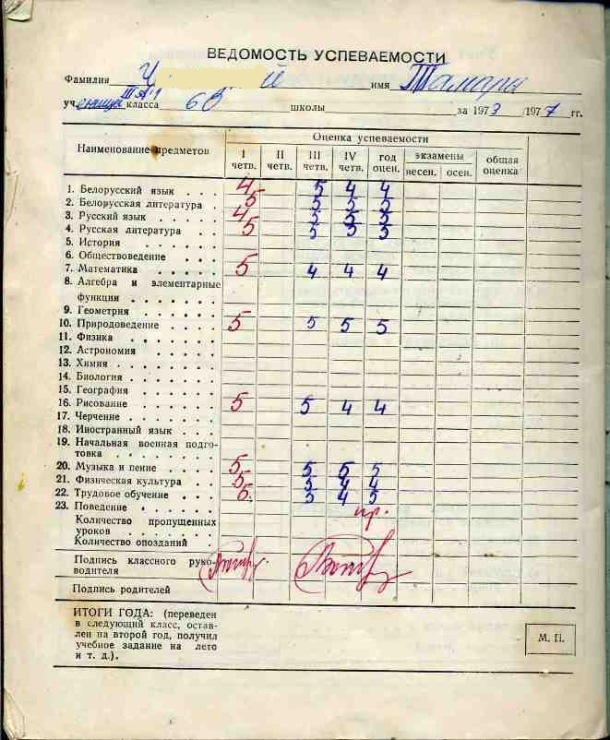 ВЕДОМОСТЬ УСПЕВАЕМОСТИ
Фамилия Ч й имя Тамары
ученицы класса 6В школы за 1973/1977 гг.
Наименование предметов Оценка успеваемости
I четв. II четв. III четв. IV четв. год оцен. экзамены весен. осен. общая оценка
1. Белорусский язык . . . 4 5 4 4
2. Белорусская литература . 5 5 5 5
3. Русский язык . . . . 4 5 5 5
4. Русская литература . . . 5 5 5 5
5. История . . . . .
6. Обществоведение . . . .
7. Математика . . . . . 5 4 4 4
8. Алгебра и элементарные
функции . . . . .
9. Геометрия . . . . .
10. Природоведение . . . . 5 5 5 5
11. Физика . . . . . .
12. Астрономия . . . . .
13. Химия . . . . . .
14. Биология . . . . .
15. География . . . . .
16. Рисование . . . . . 5 5 4 4
17. Черчение . . . . . .
18. Иностранный язык . . .
19. Начальная военная подго-
товка . . . . . .
20. Музыка и пение . . . . 5 5 5 5
21. Физическая культура . . 5 5 4 4
22. Трудовое обучение . . . 5 5 4 5
23. Поведение . . . . . пр.
Количество пропущенных
уроков . . . . . .
Количество опозданий .
Подпись классного руко-
водителя
Подпись родителей
ИТОГИ ГОДА: (переведен
в следующий класс, остав-
лен на второй год, получил
учебное задание на лето
и т. д.).
М. П.